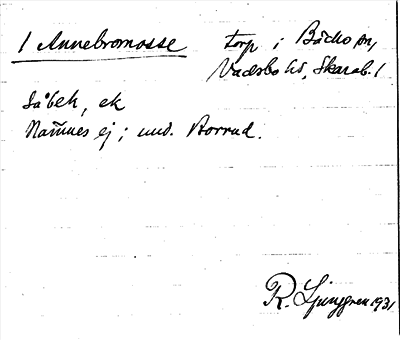 1 Annebromosse torp i Bäcks sn,
Vadsbo hd, Skarab. l
Så bek, ek
Namnes ej; und. Borrud.
R. Ljunggren 1931